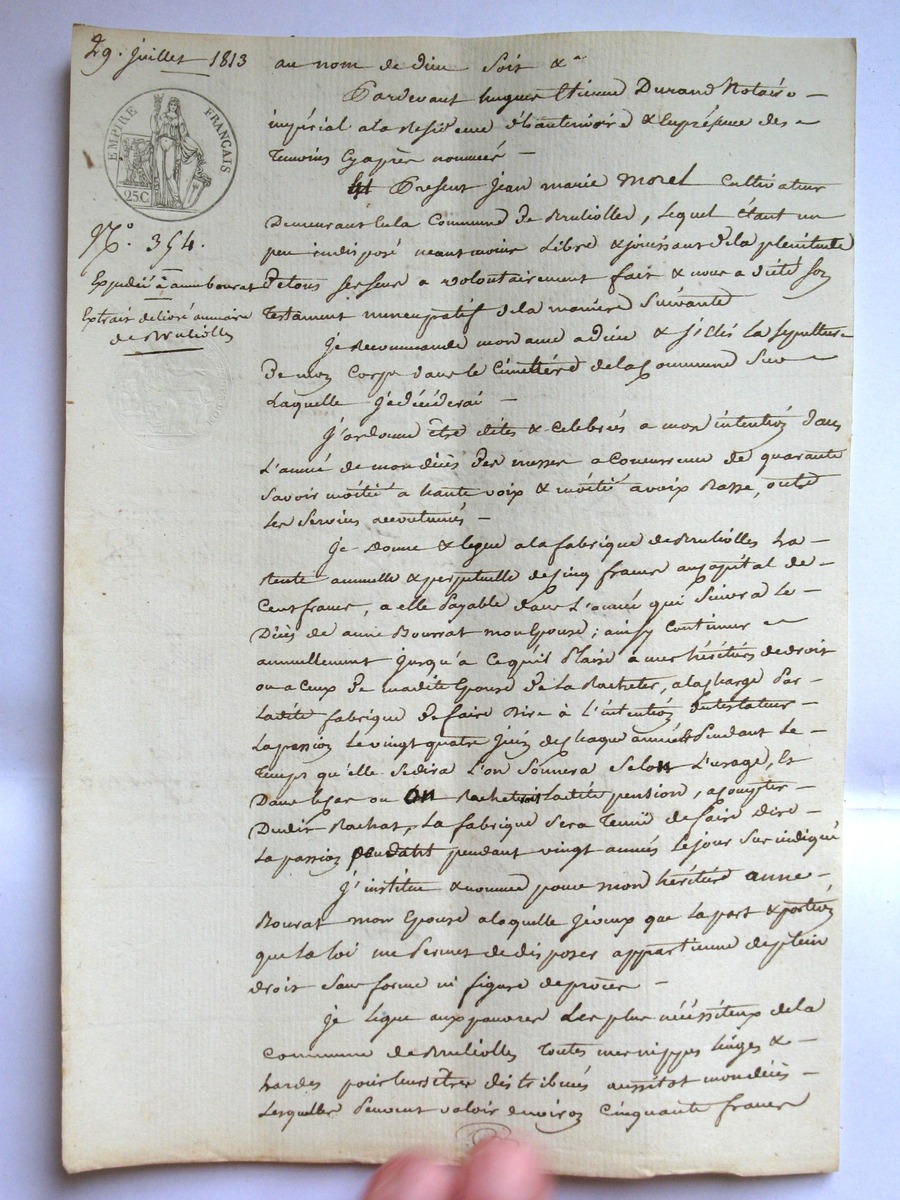 29. juillet 1813
EMPIRE FRANÇAIS
25C
N.° 354.
Expedié à anne bourat
Extrait delivré au maire
de Brulioles
au nom de dieu soit &a
Pardevant hugues Etienne Durand Notaire
impérial a la Residence & En présence des
temoins Cyaprès nommés
Present Jean marie Morel Cultivateur
Demeurant En la Commune de Brulioles, lequel étant un
peu indisposé neantmoins Libre & jouissant de la plenitude
De tous ses sens a volontairement fait & nous a dicté son
testament nuncupatif de la manière suivante
Je Recommande mon ame a dieu & j'élis la sepulture
De mon Corps dans le Cimetière de la Commune sur
Laquelle je décéderai
J'ordonne être dites & Celebrés a mon intention dans
L'année de mon décès Des messes a Concurrence de quarante
savoir moitié a haute voix & moitié a voix Basse, outre
les services accoutumés
Je Donne & legue a la fabrique de Brulioles La
Rente annuelle & perpetuelle de Cinq francs au Capital de
Cent francs, a elle Payable dans L'année qui suivra le
Décès de anne Bourrat mon Epouse; ainsy Continuer
annuellement jusqu'a Ce qu'il Plaise à mes héritiers de droit
ou a Ceux De madite Epouse De La Racheter, a la Charge Par
Ladite fabrique De faire Dire à L'intention du testateur
La passion Le vingt quatre Juin de Chaque année & Pendant Le
temps qu'elle se dira L'on sonnera selon L'usage, Et
Dans le Cas ou on Racheteroit Ladite pension, a Compter
Dudit Rachat, La fabrique sera tenue de faire dire
La passion pendant pendant vingt années Le jour sus indiqué
J'institue & nomme pour mon héritière anne
Bourat mon Epouse a laquelle je veux que La part & portion
que La loi me Permet de disposer appartienne de plein
droit sans forme ni figure de procès
Je legue aux pauvres Les plus nécéssiteux de la
Commune de Brulioles toutes mes nippes Linges &
hardes pour leurs être distribués aussitot mon décès
Lesquelles Peuvent valoir Environ Cinquante francs